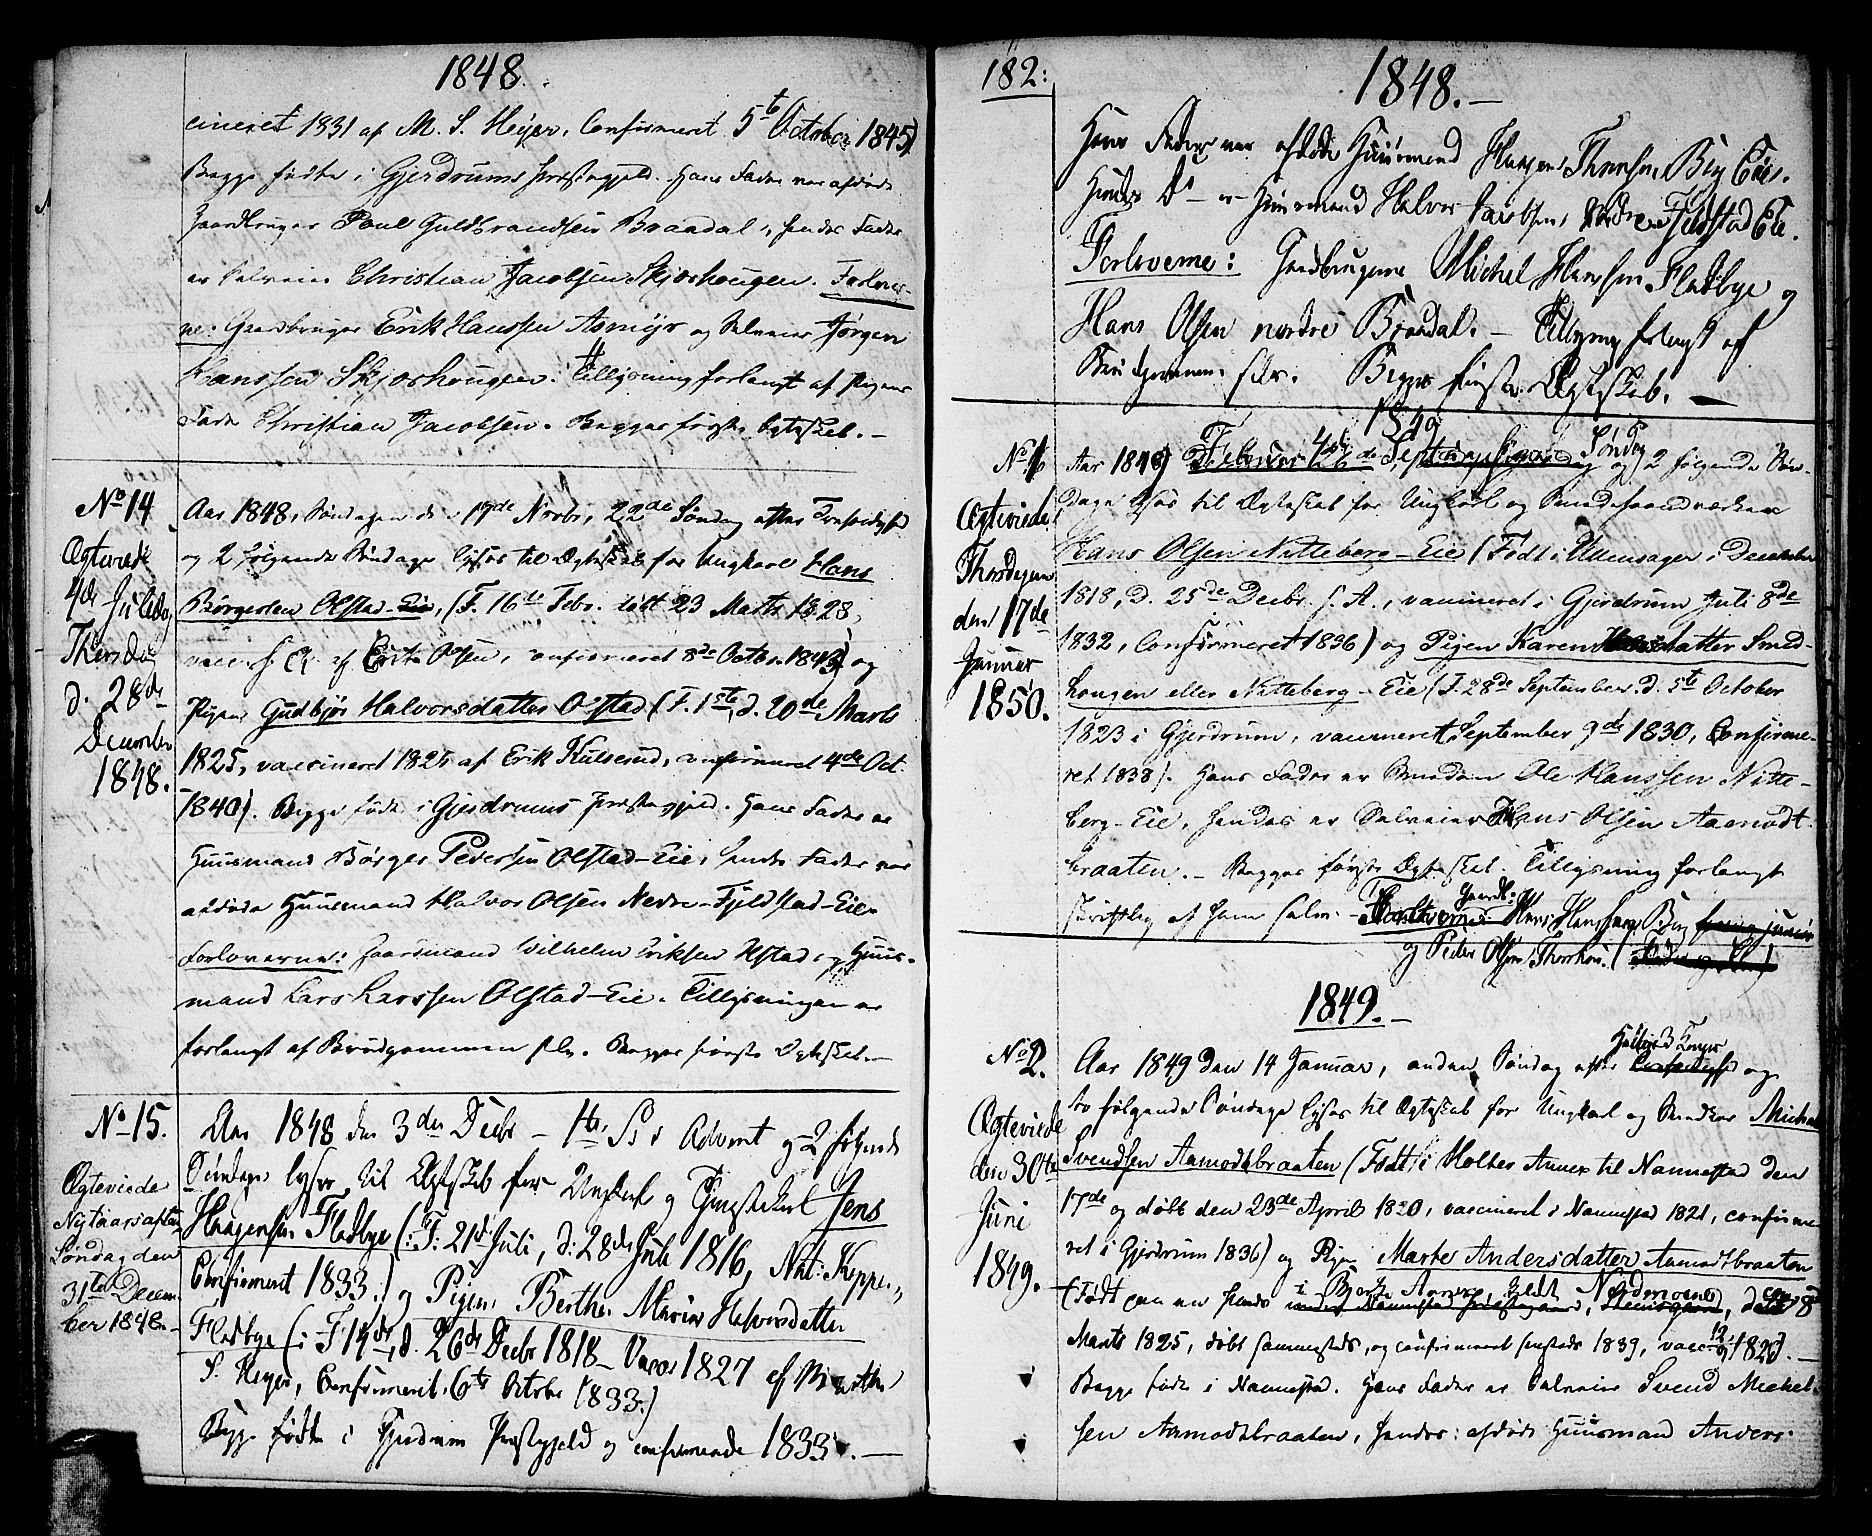 1848.
cineret 1831 af M. S. Heyer, Confirmeret 5te October 1845)
Begge fødte i Gjerdrums Præstegjeld. Hans Fader var afdøde
Gaardbruger Poul Guldbrandsen Braadal, hendes Fader
er Selveier Christian Jacobsen Skjøshougen. Forlover-
ne: Gaardbruger Erik Hanssen Asmyr og Selveier Jørgen
Hanssen Skjøshougen. Tillysning forlangt af Pigens
Fader Christian Jacobsen. Begges første Egteskab.-
No 14
Ægteviede
Thorsdag
d. 28de
December
1848.
Aar 1848, Søndagen d. 19de Novbr, 22de Søndag efter Trefoldighed
og 2 følgende Søndage lyses til Ægteskab for Ungkarl Hans
Børgersen Olstad-Eie, (F. 16de Febr. døbt 23 Marts 1828,
vacc. s. A. af Erik Olsen, confirmeret 8de Octbr. 1843) og
Pigen Gudbjør Halvorsdatter Olstad (F. 1ste, d. 20de Marts
1825, vaccineret 1825 af Erik Kulsrud, confirmeret 4de Oct.
1840). Begge fødte i Gjerdrums Præstegjeld. Hans Fader er
Huusmand Børger Pedersen Olstad-Eie, hendes Fader var
afdøde Huusmand Halvor Olsen Nedre-Fjeldstad-Eie.
Forloverne: Gaardmand Wilhelm Eriksen Olstad og Huus-
mand Lars Larssen Olstad-Eie. Tillysningen er
forlangt af Brudgommen selv. Begges første Ægteskab.-
No 15.
Ægteviede
Nytaarsaften
Søndag den
31te Decem-
ber 1848.-
Aar 1848 den 3die Decbr - 1te S. i Advent og 2 følgende
Søndage lyses til Ægteskab for Ungkarl og Jens
Haagensen Fladbye (: F. 21de Juli, d. 28de Juli 1816, Nat: Kopper,
Confirmeret 1833.) og Pigen Berthe Marie Halvorsdatter
Fladbye (: F. 14de, d. 26de Decbr 1818 - Vacc 1827 af
S. Heyer, Confirmeret 6te Octobr 1833.)
Begge fødte i Gjerdrum Præstegjeld og confirmerede 1833. -
182:
1848.-
Hans Fader var afdøde Huusmand Haagen Eie.
Hendes Do - er Huusmand Halvor Jacobsen, Nedre Fjeldstad Eie.
Forloverne: Gaardbrugerne Michel Hanssen Fladbye og
Hans Olsen nordre Braadal. - Tillysning forlangt af
Brudgommen selv. Begges første Ægteskab. -
1849
No 1
Ægteviede
Thorsdagen
den 17de
Januar
1850.
Aar 1849 Søndag og 2 følgende Søn-
dage lyses til Ægteskab for Ungkarl og
Hans Olsen Nitteberg-Eie (Født i Ullensager i December
1818, D. 25de Decbr. s. A., vaccineret i Gjerdrum Juli 8de
1832, Confirmeret 1836) og Pigen Karen Hansdatter Smed-
hougen eller Nitteberg-Eie (F. 28de September d. 5te October
1823 i Gjerdrum, vaccineret September 9de 1830, Confirme-
ret 1838). Hans Fader er Ole Hanssen Nitte-
berg-Eie, hendes er Selveier Hans Olsen Aamodt-
braaten. - Begges første Ægteskab. Tillysning forlangt
skriftlig af ham selv. - Forloverne Gaardbr: Hans Hanssen
og Peder Olsen
1849.-
No 2.
Ægteviede
den 30te
Juni
1849.-
Hellig 3 Konger
Aar 1849 den 14 Januar, anden Søndag efter og
to følgende Søndage lyses til Ægteskab for Ungkarl og Michel
Svendsen Aamodtbraaten (Født i Holter Annex til Nannestad den
17de og døbt den 23de April 1820, vaccineret i Nannestad 1821, confirme-
ret i Gjerdrum 1836) og Pigen Marte Andersdatter Aamodtbraaten
i Bjerke Annex
(Født den 8de
Marts 1825, døbt sammesteds, og confirmeret sammesteds 1839,
Begge fødte i Nannestad. Hans Fader er Selveier Svend Michel-
sen Aamodtbraaten, hendes: afdøde Huusmand Anders